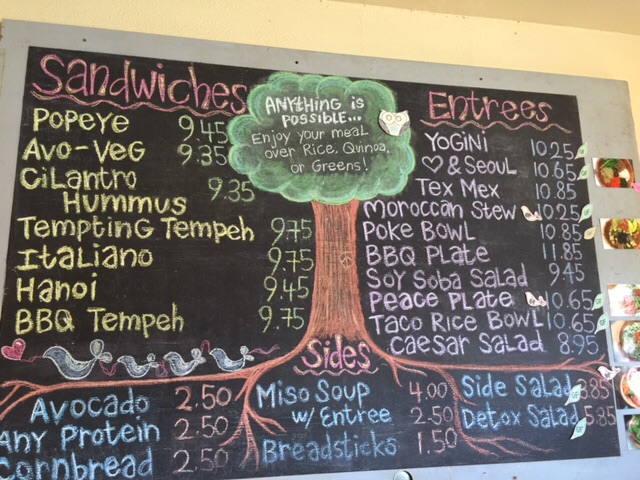 Sandwiches
Popeye 9.45
Avo-Veg 9.35
Cilantro
Hummus 9.35
Tempting Tempeh 9.75
Italiano 9.75
Hanoi 9.45
BBQ Tempeh 9.75
Anything is
possible...
Enjoy your meal
over Rice, Quinoa,
or Greens!
Entrees
Yogini 10.25
♡ & Seoul 10.65
Tex Mex 10.85
Moroccan Stew 10.25
Poke Bowl 10.85
BBQ Plate 11.85
Soy Soba Salad 9.45
Peace Plate 10.65
Taco Rice Bowl 10.65
Caesar Salad 8.95
Sides
Avocado 2.50
Any Protein 2.50
Cornbread 2.50
Miso Soup 4.00
w/ Entree 2.50
Breadsticks 1.50
Side Salad 3.85
Detox Salad 5.85